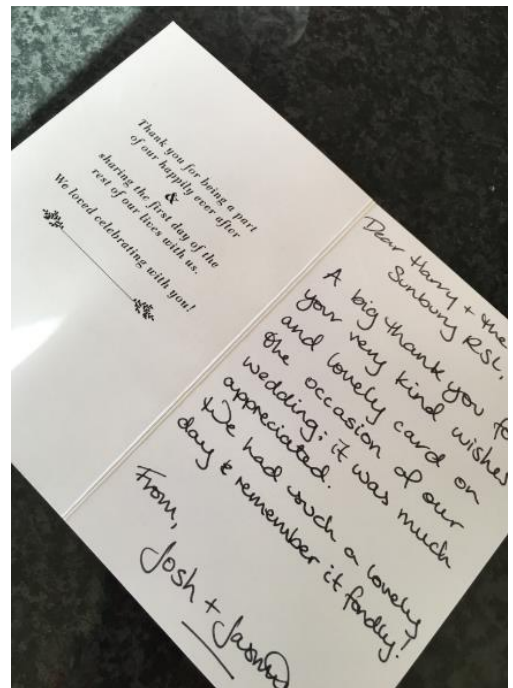 Thank you for being a part
of our happily ever after
&
sharing the first day of the
rest of our lives with us.
We loved celebrating with you!
Dear Harry + the
Sunbury RSL,
A big thank you fo
your very kind wishes
and lovely card on
the occasion of our
wedding; it was much
appreciated.
We had such a lovely
day & remember it fondly!
From,
Josh +